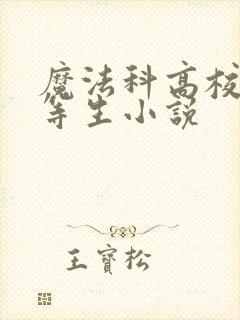 魔法科高校
等生小説
王寶松